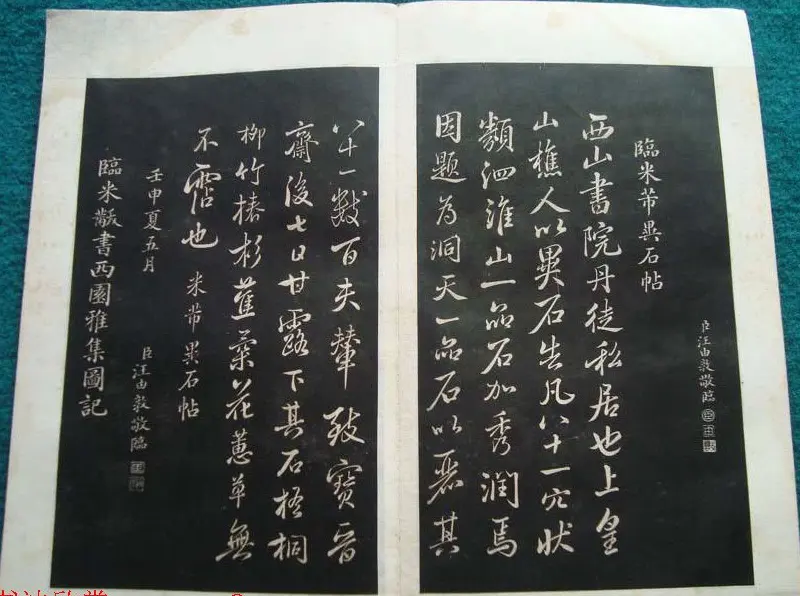 臣汪由敦敬臨
臨米芾異石帖
西山書院丹徒私居也上皇
山樵人以異石告凡八十一穴狀
類泗淮山一品石加秀潤焉
因題為洞天一品石以丕其
八十一數百夫輦致寶晉
齋後七日甘露下其石梧桐
柳竹椿杉蕉菜花蕙草無
不霑也 米芾異石帖
壬申夏五月
臣汪由敦敬臨
臨米黻書西園雅集圖記